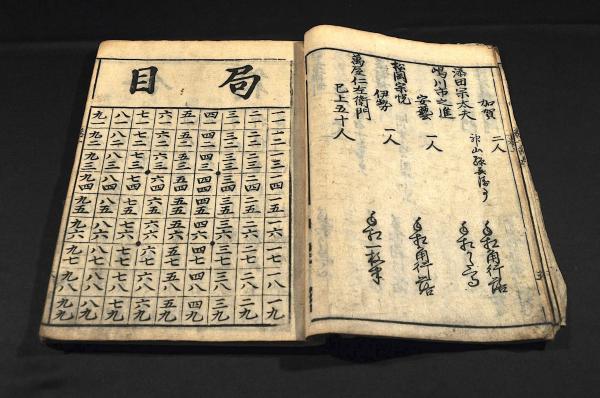 加賀 二人
添田宗太夫
嶋川市之進
安藝 一人
松岡宗悦
伊勢 一人
萬屋仁左衛門
已上五十人
局目
一一 一二 一三 一四 一五 一六 一七 一八 一九
二一 二二 二三 二四 二五 二六 二七 二八 二九
三一 三二 三三 三四 三五 三六 三七 三八 三九
四一 四二 四三 四四 四五 四六 四七 四八 四九
五一 五二 五三 五四 五五 五六 五七 五八 五九
六一 六二 六三 六四 六五 六六 六七 六八 六九
七一 七二 七三 七四 七五 七六 七七 七八 七九
八一 八二 八三 八四 八五 八六 八七 八八 八九
九一 九二 九三 九四 九五 九六 九七 九八 九九